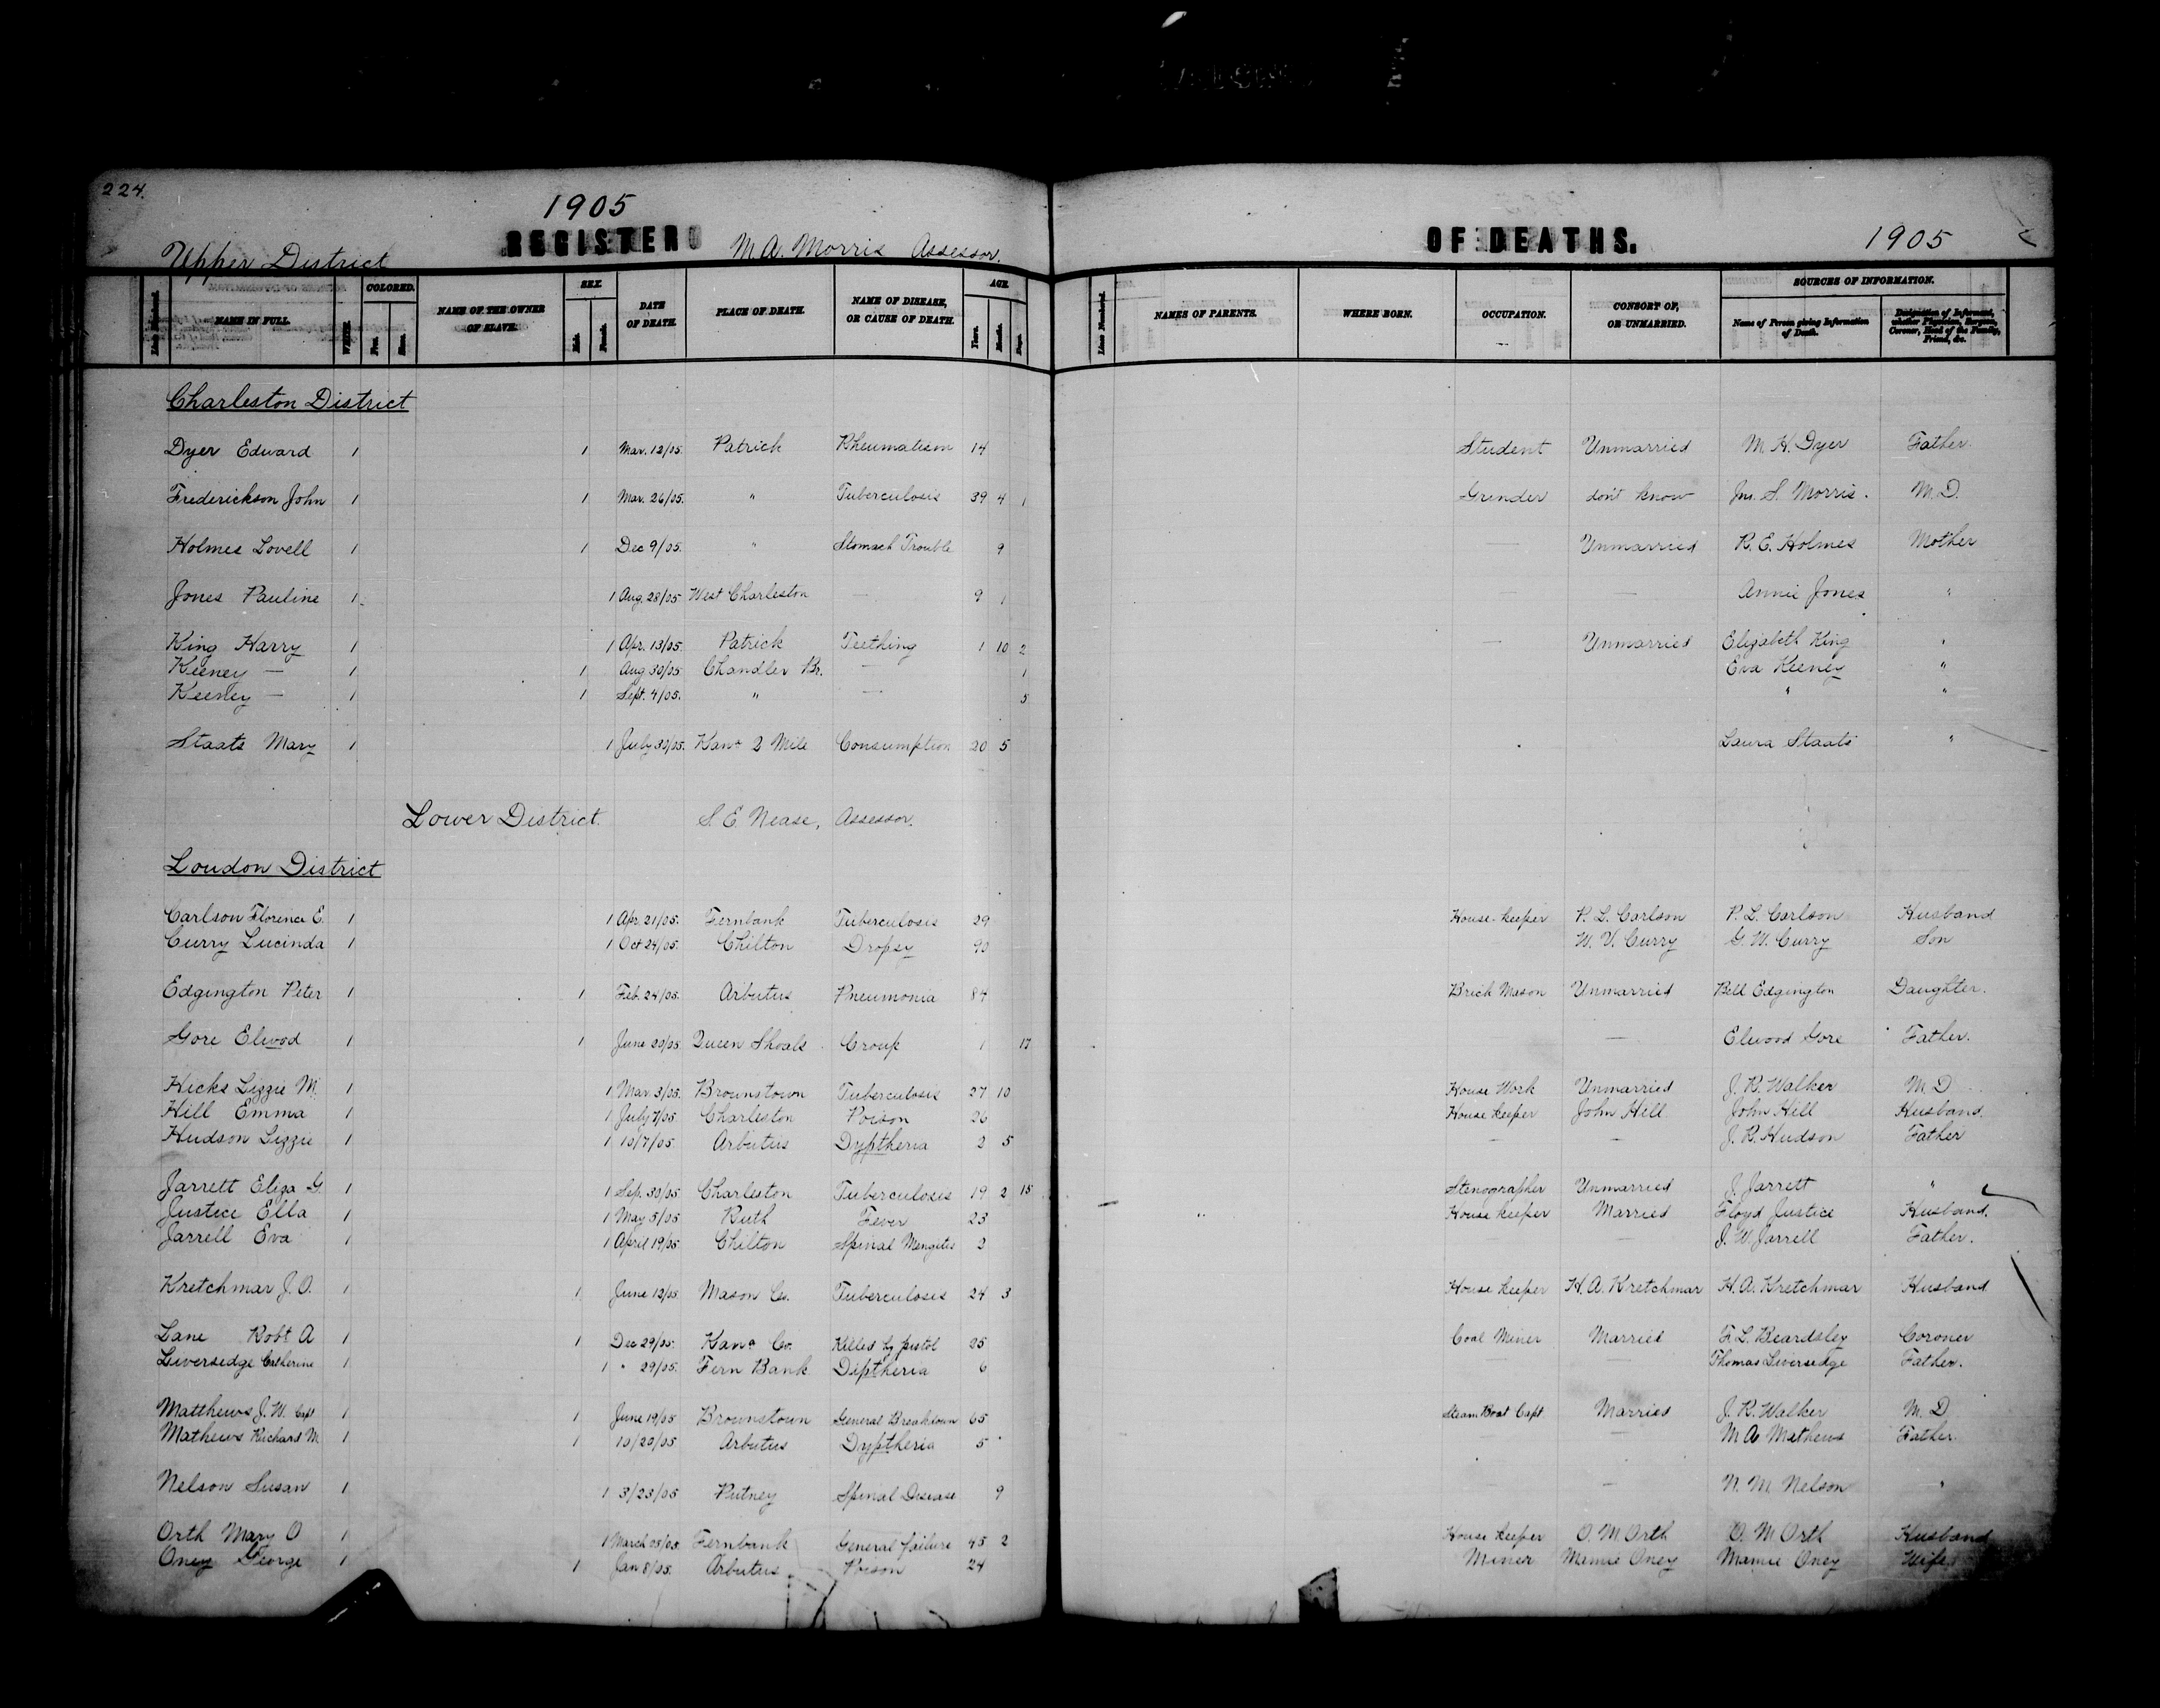 224.
1905
REGISTER OF DEATHS. 1905
Upper District M.A. Morris Assessor.
NAME IN FULL. WHITE. COLORED. Free. Slave. NAME OF THE OWNER OF SLAVE. SEX. Male. Female. DATE OF DEATH. PLACE OF DEATH. NAME OF DISEASE, OR CAUSE OF DEATH. AGE. Years. Months. Days. Lines Numbered. NAMES OF PARENTS. WHERE BORN. OCCUPATION. CONSORT OF, OR UNMARRIED. SOURCES OF INFORMATION. Name of Person giving Information of Death. Designation of Informant, whether Physician, Surgeon, Coroner, Head of the Family, Friend, &c.
Charleston District
Dyer Edward 1 1 Mar. 12/05. Patrick Rheumatism 14 Student Unmarried M. H. Dyer Father.
Frederickson John 1 1 Mar. 26/05. " Tuberculosis 39 4 1 Grinder don't know Jno. S. Morris. M.D.
Holmes Lovell 1 1 Dec 9/05. " Stomach Trouble 9 — Unmarried R. E. Holmes Mother
Jones Pauline 1 1 Aug. 28/05. West Charleston — 9 1 — — Annie Jones "
King Harry 1 1 Apr. 13/05. Patrick Teething 1 10 2 — Unmarried Elizabeth King "
Keeney — 1 1 Aug 30/05. Chandler Br. — 1 Eva Keeney "
Keeney — 1 1 Sept. 4/05. " — 5 " "
Staats Mary 1 1 July 30/05. Kana 2 Mile Consumption 20 5 Laura Staats "
Lower District. S. E. Nease, Assessor.
Loudon District
Carlson Florence E. 1 1 Apr. 21/05. Fernbank Tuberculosis 29 House-keeper P. L. Carlson P. L. Carlson Husband
Curry Lucinda 1 1 Oct 24/05. Chilton Dropsy 90 W. V. Curry G. W. Curry Son
Edgington Peter 1 1 Feb. 24/05. Arbutus Pneumonia 84 Brick Mason Unmarried Bell Edgington Daughter.
Gore Elwod 1 1 June 20/05. Queen Shoals Croup 1 17 — Elwood Gore Father.
Hicks Lizzie M. 1 1 Mar 3/05. Brownstown Tuberculosis 27 10 House Work Unmarried J. R. Walker M.D.
Hill Emma 1 1 July 7/05. Charleston Poison 26 House keeper John Hill John Hill Husband.
Hudson Lizzie 1 1 10/7/05. Arbutus Dyptheria 2 5 — — J. R. Hudson Father
Jarrett Eliza G. 1 1 Sep. 30/05 Charleston Tuberculosis 19 2 15 Stenographer Unmarried J. Jarrett "
Justice Ella 1 1 May 5/05 Ruth Fever 23 House keeper Married Floyd Justice Husband.
Jarrell Eva 1 1 April 19/05. Chilton Spinal Mengites 3 — — J. W. Jarrell Father.
Kretchmar J. O. 1 1 June 12/05. Mason Co. Tuberculosis 24 3 House keeper H. A. Kretchmar H. A. Kretchmar Husband
Lane Robt A 1 1 Dec 29/05. Kana Co. Killed by pistol 25 Coal Miner Married F. L. Beardsley Coroner
Liversedge Catherine 1 1 " 29/05. Fern Bank Diptheria 6 — — Thomas Liversedge Father.
Matthews J. W. Capt 1 1 June 19/05 Brownstown General Breakdown 65 Steam Boat Capt. Married J. R. Walker M.D
Mathews Richard M. 1 1 10/20/05 Arbutus Dyptheria 5 — — M. A. Mathews Father.
Nelson Susan 1 1 3/23/05 Putney Spinal Disease 9 — — N. M. Nelson "
Orth Mary O 1 1 March 25/05. Fernbank General failure 45 2 House keeper O. M Orth O. M Orth Husband
Oney George 1 1 Jan 8/05. Arbutus Poison 24 Miner Mamie Oney Mamie Oney Wife.